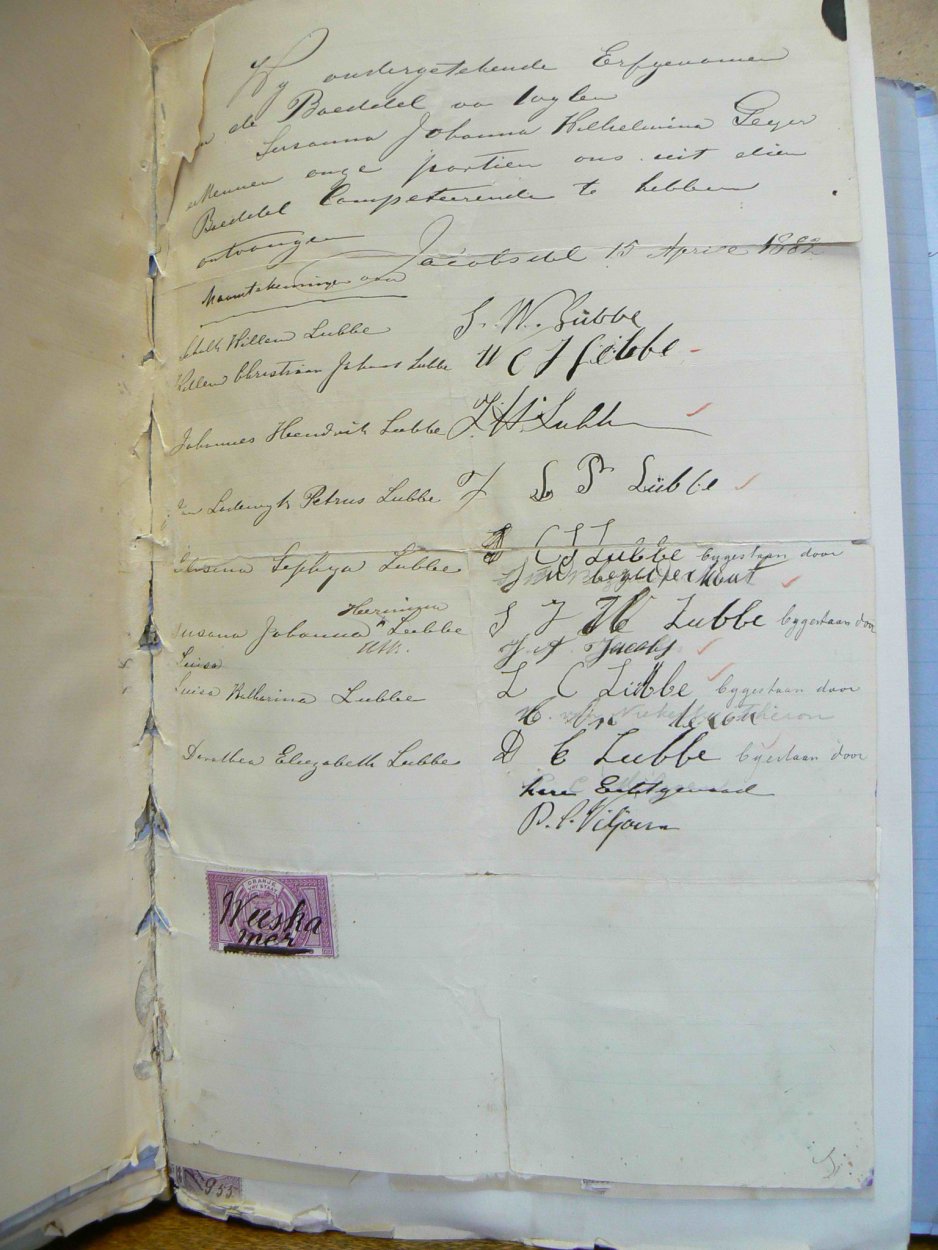 Wy ondergetekende Erfgenamen
in de Boeddel van wylen
Susanna Johanna Wilhelmina Geyer
erkennen onze portien ons uit dien
Boeddel Competeerende te hebben
ontvangen
Jacobsdal 15 April 1882
Naamtekeningen van
Schalk Willem Lubbe S. W. Lubbe
Willem Christiaan Johannes Lubbe W C J Lubbe
Johannes Hendrik Lubbe J. H. Lubbe
Jan Lodewyk Petrus Lubbe J L P Lubbe
Sophya Lubbe C S Lubbe bygestaan door
Bezuidenhout
Susana Johanna Lubbe S J W Lubbe bygestaan door
J. A. Jacobs
Luisa
Luisa Katharina Lubbe L C Lubbe bygestaan door
Dorothea Elizabeth Lubbe D E Lubbe bygestaan door
hare Echtgenoot
P. C. Viljoen
ORANJE
VRY STAAT
Weeska
mer
955